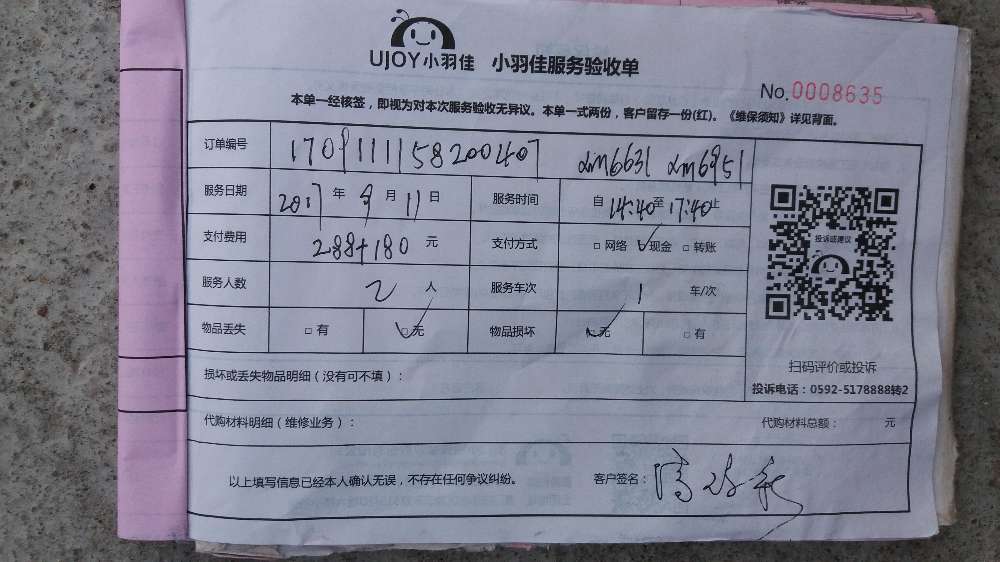 UJOY小羽佳 小羽佳服务验收单
No.0008635
本单一经核签，即视为对本次服务验收无异议。本单一式两份，客户留存一份(红)。《维保须知》详见背面。
订单编号 1709111158200407 dm6631 dm6951
服务日期 2017年9月11日 服务时间 自14:40至17:40止
支付费用 288+180元 支付方式 □网络 √现金 □转账
服务人数 2人 服务车次 1车/次
物品丢失 □有 ☑无 物品损坏 ☑无 □有
投诉或建议
扫码评价或投诉
投诉电话：0592-5178888转2
损坏或丢失物品明细（没有可不填）：
代购材料明细（维修业务）： 代购材料总额： 元
以上填写信息已经本人确认无误，不存在任何争议纠纷。 客户签名：